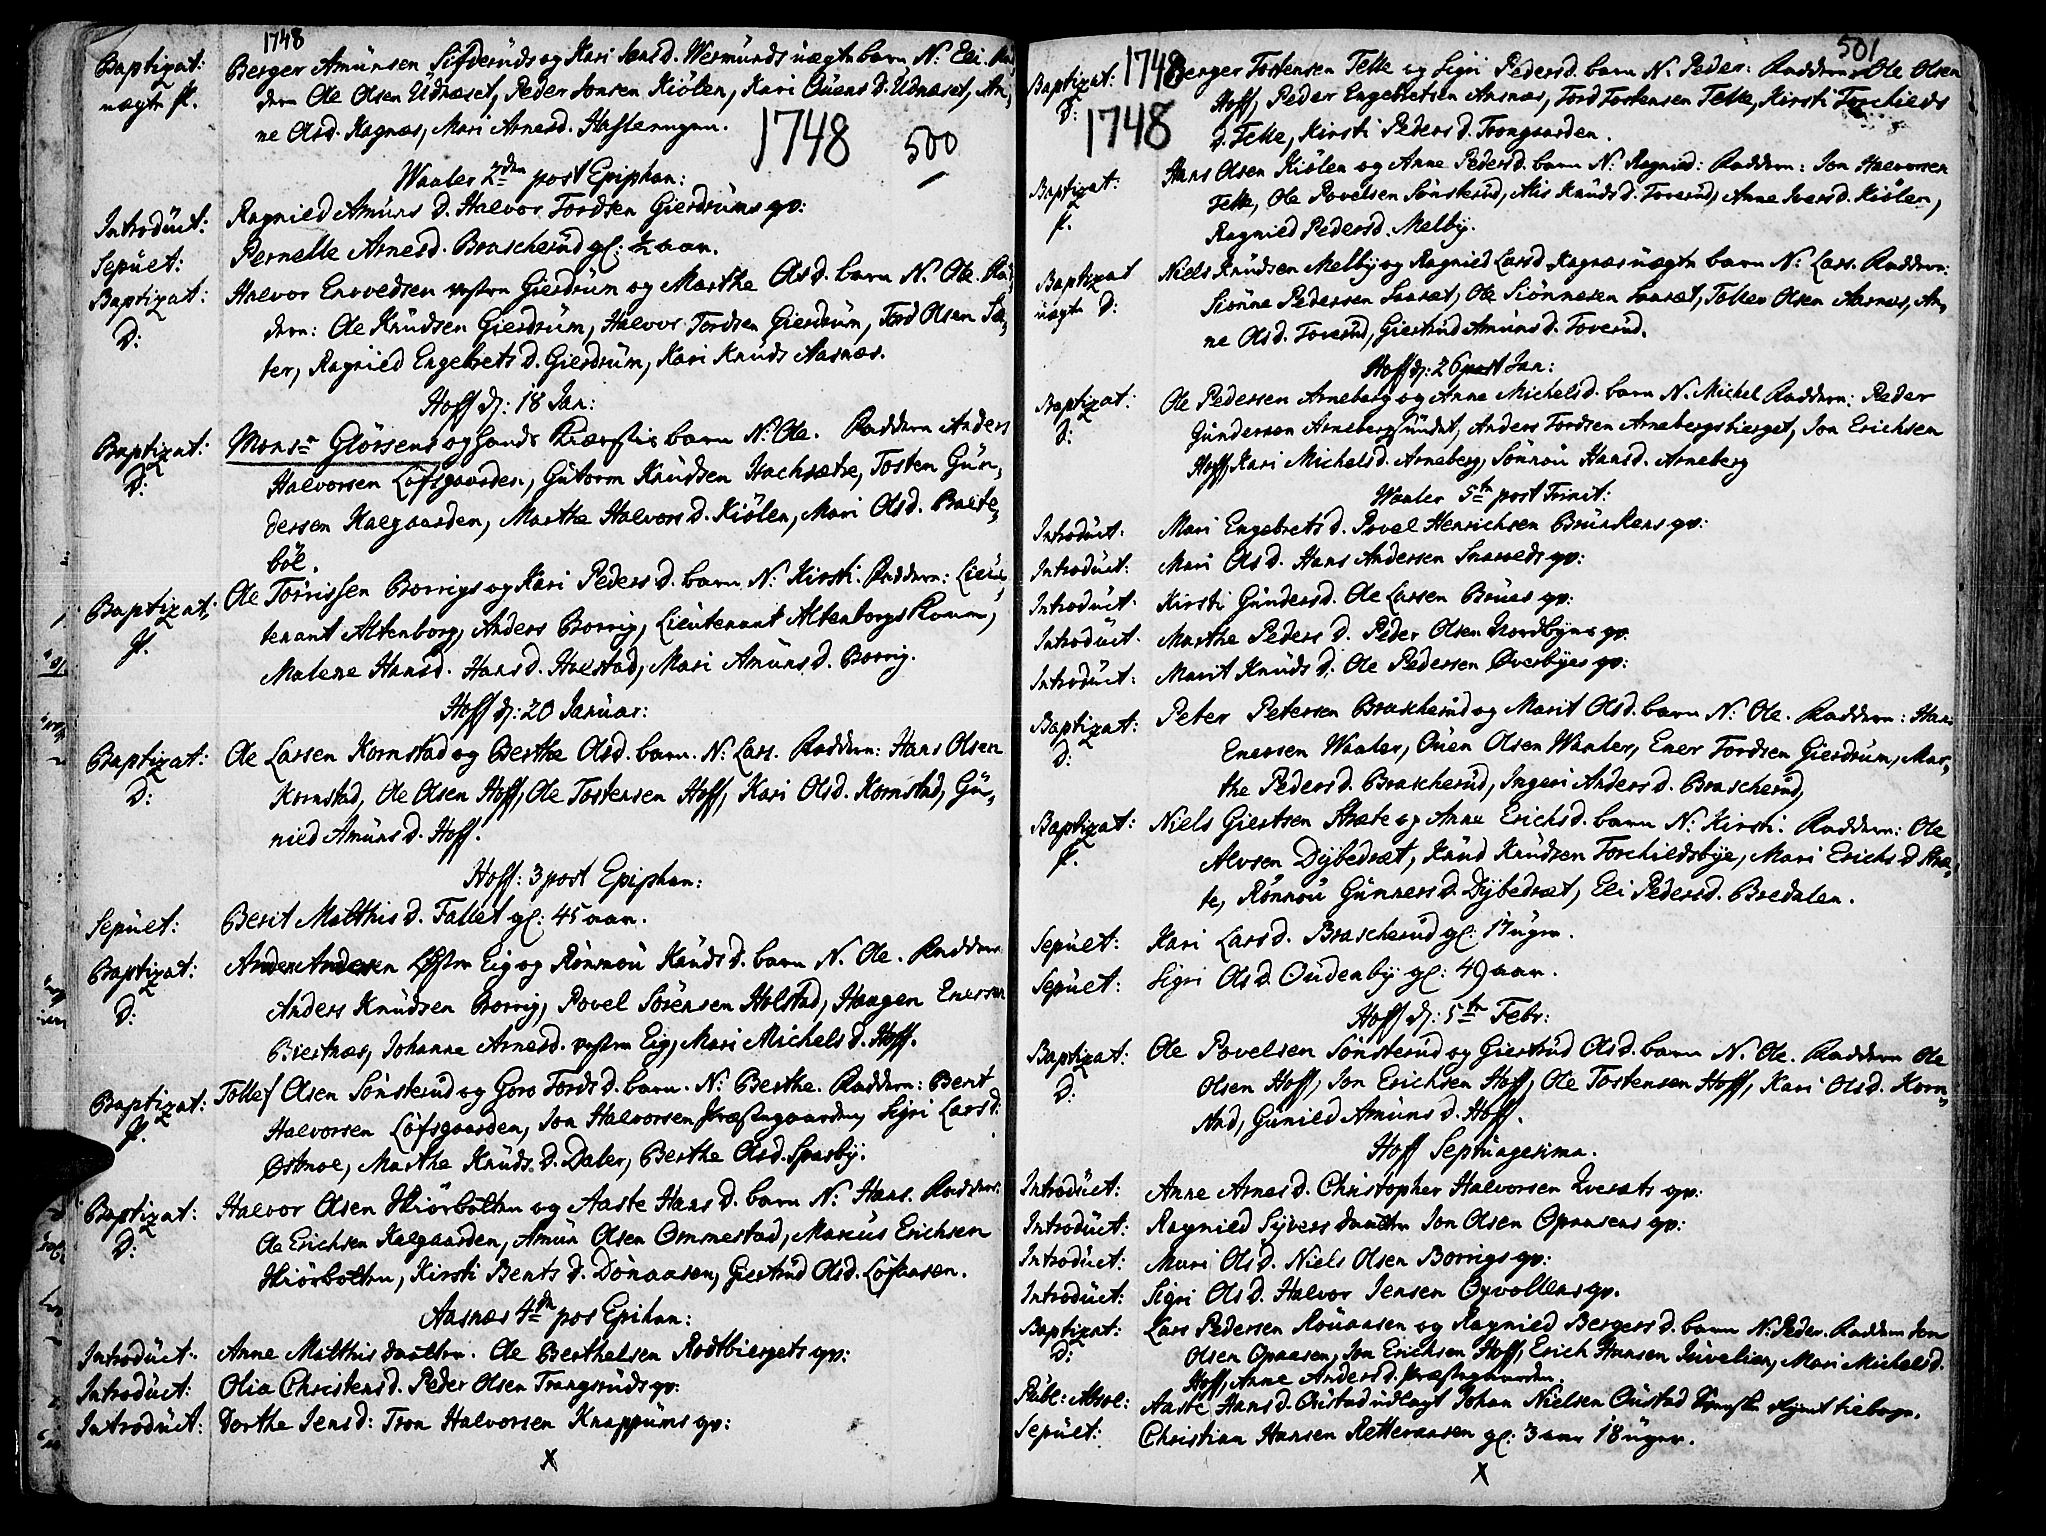 1748
Baptizat: Berger Amunsen Sifderuds og Kari Jens d. Wermunds uægte barn N: Eli.
uægte p. dern Ole Olsen Udnæset, Peder Jonsen Kiölen, Kari Ouens D. Udnæset, An,
ne Olsd. Kagnæs, Mari Arnesd. Haslerngen.
1748 500
Waaler 2den post Epiphan:
Introduct: Ragnied Amuns D. Halvor Tordsen Gierdrums qv:
Sepult: Pernelle Arnesd. Brascherud gl: ½ aar.
Baptizat: Halvor Envedsen vestre Gierdrum og Marthe Olsd. barn N. Ole.
D: dern: Ole Knudsen Gierdrum, Halvor Tordsen Gierdrum, Tord Olsen Sæ,
ter, Ragnied Engebrets D. Gierdrum, Kari Knuds Aasnæs.
Hoff d: 18 Jan:
Baptizat: Monsr Glörsens og hands Kierestis barn N. Ole. Faddern Anders
D: Halvorsen Löfsgaarden, Gutorm Knudsen Hachsætre, Tosten Gun,
dersen Kalgaarden, Marthe Halvors d. Kiölen, Mari Olsd. Bræte,
böl.
Baptizat: Ole Torrissen Borrigs og Kari Peders D. barn N: Kirsti. Faddern: Lieu,
p. tenant Altenborg, Anders Borrig, Lieutenant Altenborgs Frue,
Malene Hansd. Hans d. Holstad, Mari Amuns d. Borrig.
Hoff d: 20 Januar:
Baptizat: Ole Larsen Kornstad og Berthe Olsd. barn. N: Lars. Faddern: Hans Olsen
D: Kornstad, Ole Olsen Hoff, Ole Tostensen Hoff, Kari Olsd. Kornstad, Gu,
nied Amuns d. Hoff.
Hoff: 3 post Epiphan:
Sepult: Berit Matthis d. Fallet gl: 45 aar.
Baptizat: Anders Andersen Östre Eig og Rönnou Knuds d. barn N. Ole. Faddern
D: Anders Knudsen Borrig, Povel Sörensen Holstad, Haagen Enersen
Biertnæs, Johanne Arnesd. vestre Eig, Mari Michels d. Hoff.
Baptizat: Tollef Olsen Sönsterud og Goro Tords d. barn. N: Berthe. Faddern: Berit
p. Halvorsen Löfsgaarden, Jon Halvorsen Præstegaarden, Sigri Lars d:
Østmoe, Marthe Knuds. D. Daler, Berthe Olsd. Sparby.
Baptizat: Halvor Olsen Skiörbolten og Aaste Hans D. barn N: Hans. Faddern:
D: Ole Erichsen Kalgaarden, Amun Olsen Ommestad, Marcus Erichsen
Skiörbolten, Kirsti Bents d. Dönaasen, Giertrud Olsd. Löfaasen.
Aasnæs 4de pos Epihan:
Introduct: Anne Matthis daatter. Ole Berthelsen Rodtbiergets qv:
Introduct: Olia Christens d. Peder Olsen Trangsruds qv:
Introduct: Dorthe Jens d: Tron Halvorsen Knappums qv:
X
501
1748
Baptizat: Berger Tostensen Telle og Sigri Peders d. barn N. Peder: Faddern: Ole Olsen
D: Hoff, Peder Engebretsen Aasnæs, Tord Tostensen Telle, Kirsti Torchields
1748 D. Telle, Kirsti Peders d. Trongaarden.
Baptizat: Hans Olsen Kiölen og Anne Pedersd. barn N: Ragnied: Faddern: Jon Halvorsen
p. Telle, Ole Povelsen Sönsterud, Alis Knuds d. Toverud, Anne Ivers d. Kiölen,
Ragnied Pedersd. Melby.
Baptizat Niels Knudsen Melby og Ragnied Larsd Kagnæs uægte barn N: Lars. Faddern:
uægte D: Siönne Pedersen Saaset, Ole Siönnesen Saaset, Tolles Olsen Aasnæs, An,
ne Olsd. Toverud, Giertrud Amuns d. Toverud.
Hoff d: 26 Jan:
Baptizat: Ole Pedersen Arneberg og Anne Michels d. barn N. Michel Faddern: Peder
D: Gundersen Arnebergsundet, Anders Tordsen Arnebergsbierget, Jon Erichsen
Hoff, Kari Michels d. Arneberg, Sönnou Hans d. Arneberg
Waaler 5te post Trinit:
Introduct: Mari Engebrets d. Povel Henrichsen Bruskens qv:
Introduct: Mari Olsd. Hans Andersen Snarreds qv:
Introduct: Kirsti Gundersd. Ole Larsen Brues qv:
Introduct. Marthe Peders d. Peder Olsen Nordbyes qv.
Introduct: Marit Knuds d. Ole Pedersen Øverbyes qv:
Baptizat: Peter Petersen Brascherud og Marit Olsd. barn N: Ole. Faddern: Hans
D: Enersen Waaler, Ouen Olsen Waaler, Ener Tordsen Gierdrum, Mar,
the Peders d. Brascherud, Ingeri Anders d. Brascherud,
Baptizat: Niels Giertsen Stræte og Anne Erichs d. barn N: Kirsti. Faddern: Ole
p. Alvsen Dybedræt, Knud Knudsen Torchildsbye, Mari Erichs d Stræ,
te, Rönnou Gunners d. Dybedræt, Eli Peders d. Bredalen.
Sepult: Kari Lars d. Brascherud gl: 17 uger.
Sepult: Sigri Olsd. Oudenby gl: 49 aar.
Hoff d: 5te Febr:
Baptizat: Ole Povelsen Sönsterud og Giertrud Olsd. barn N. Ole. Faddern Ole
D: Olsen Hoff, Jon Erichsen Hoff, Ole Tostensen Hoff, Kari Olsd. Korn,
stad, Gunild Amuns d. Hoff.
Hoff Septuagesima.
Introduct: Anne Arnes d. Christopher Halvorsen Qveræts qv:
Introduct: Ragnied Syvers daatter Jon Olsen Opaasens qv:
Introduct: Mari Olsd. Niels Olsen Borrigs qv:
Introduct: Sigri Olsd. Halvor Jensen Öyvollens qv.
Baptizat: Lars Pedersen Rouaasen og Ragnied Bergers d. barn N: Peder. Faddern Jon
D: Olsen Opaasen, Jon Erichsen Hoff, Erich Hansen Juvelien, Mari Michels d.
Hoff, Anne Anders d. Præstegaarden.
Publ: Absol: Aaste Hans d. Oustad udlagt Johan Nielsen Oustad
Sepult: Christian Hansen Retteraasen gl: 3 aar 18 uger.
X